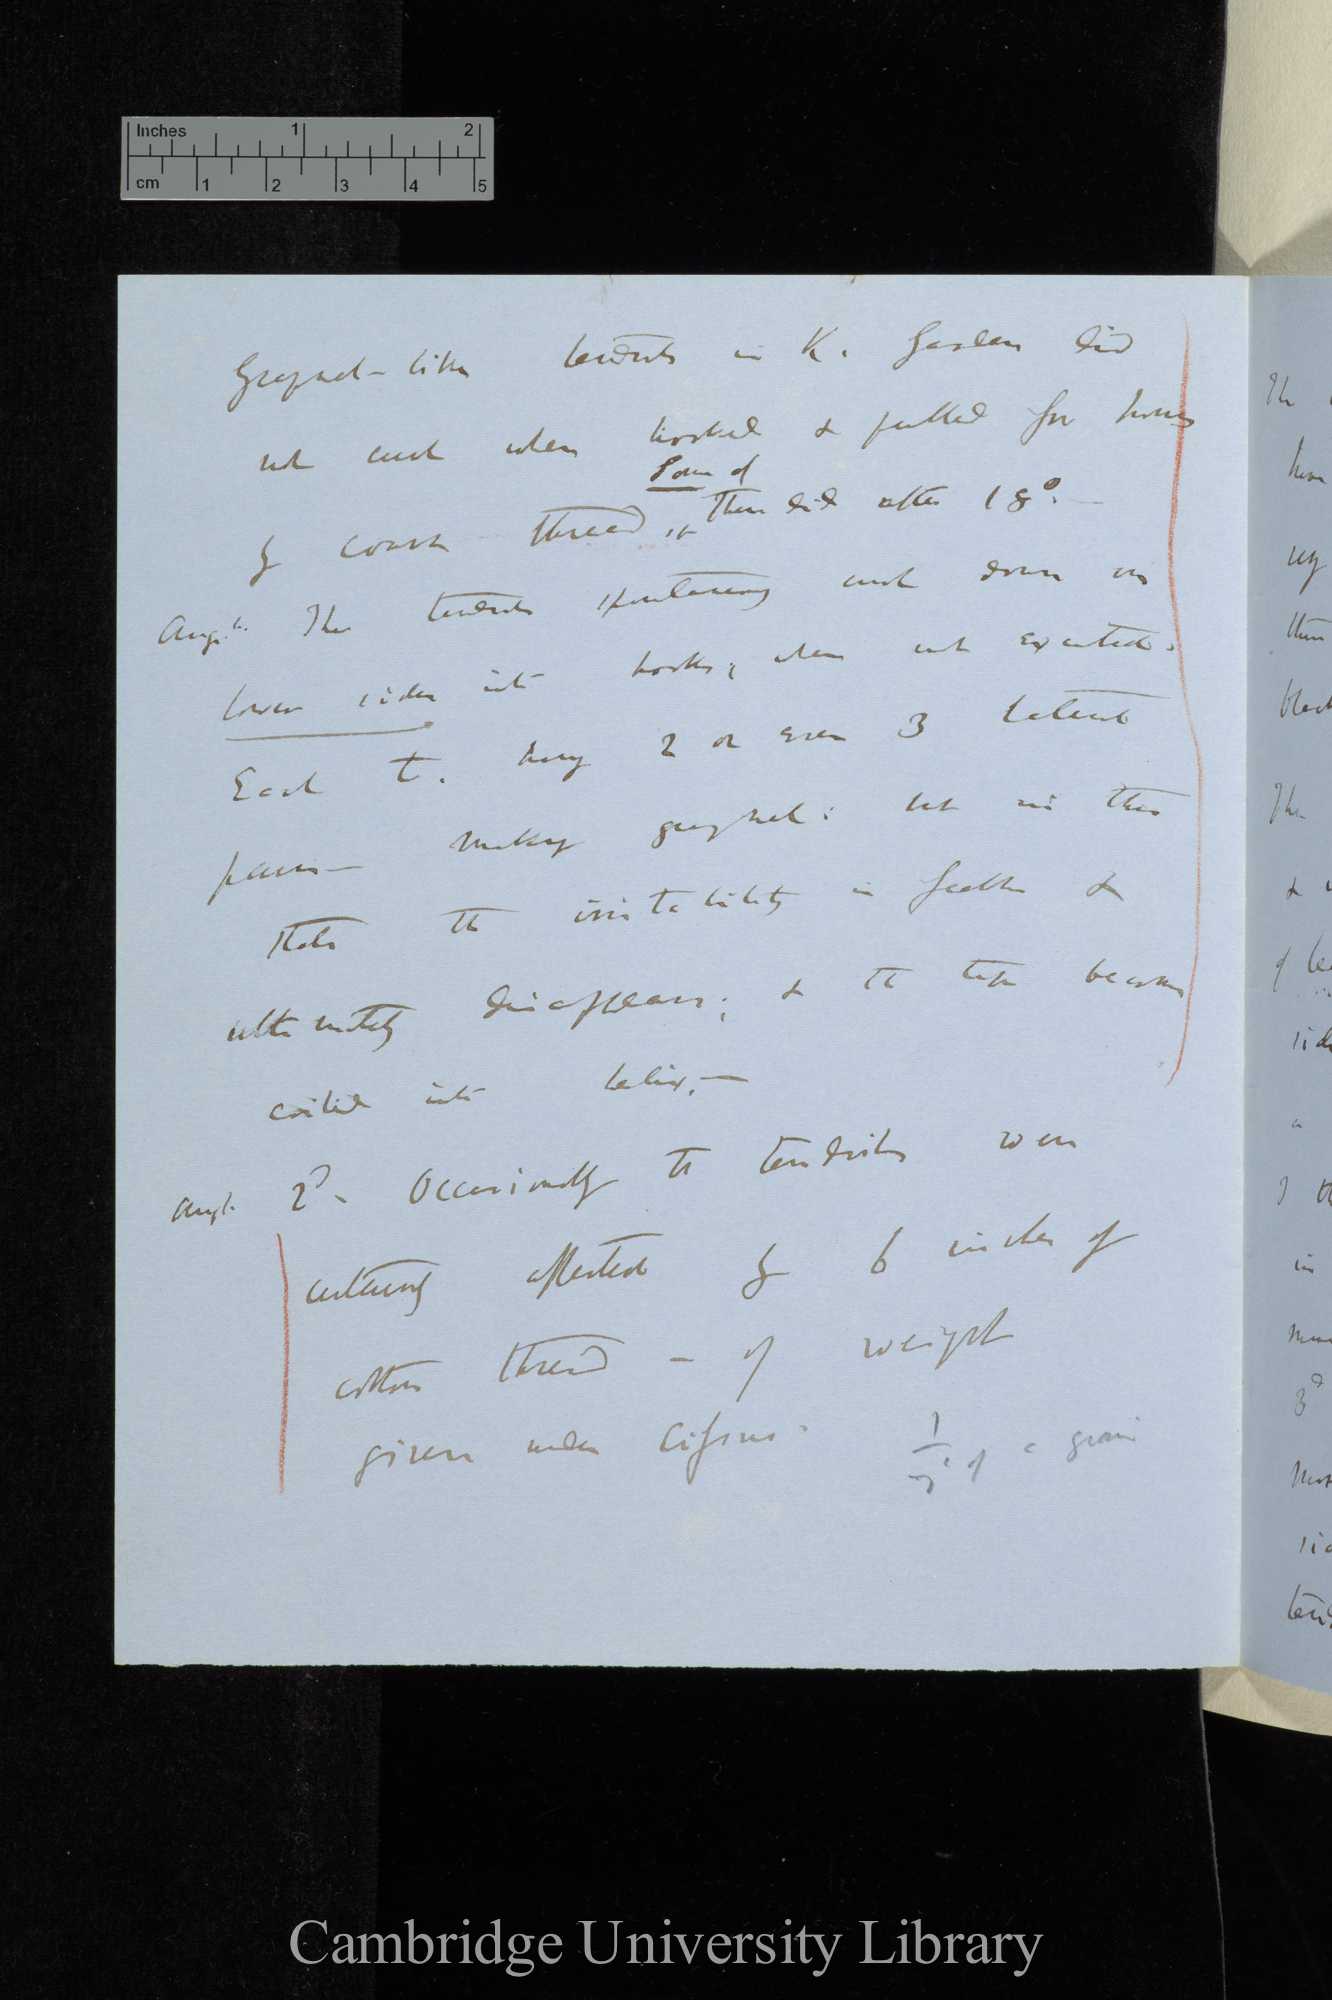 Inches 1 2
cm 1 2 3 4 5
Grapnel-like tendrils in K. Garden did
not curl when hooked & pulled for hours
Some of
by coarse thread, Then did after 18°.—
Aug. The tendrils spontaneously curl down on
lower sides into hooks; when not excited.
Each t. having 2 or even 3 lateral
pairs— making grapnel: but in this
state the irritability is feeble &
ultimately disappears; & the tips become
coiled into helix.—
Aug. 2d. Occasionally the tendrils were
certainly affected by 6 inches of
cotton thread – of weight
given under Cissus. 1/7 of a grain
Cambridge University Library